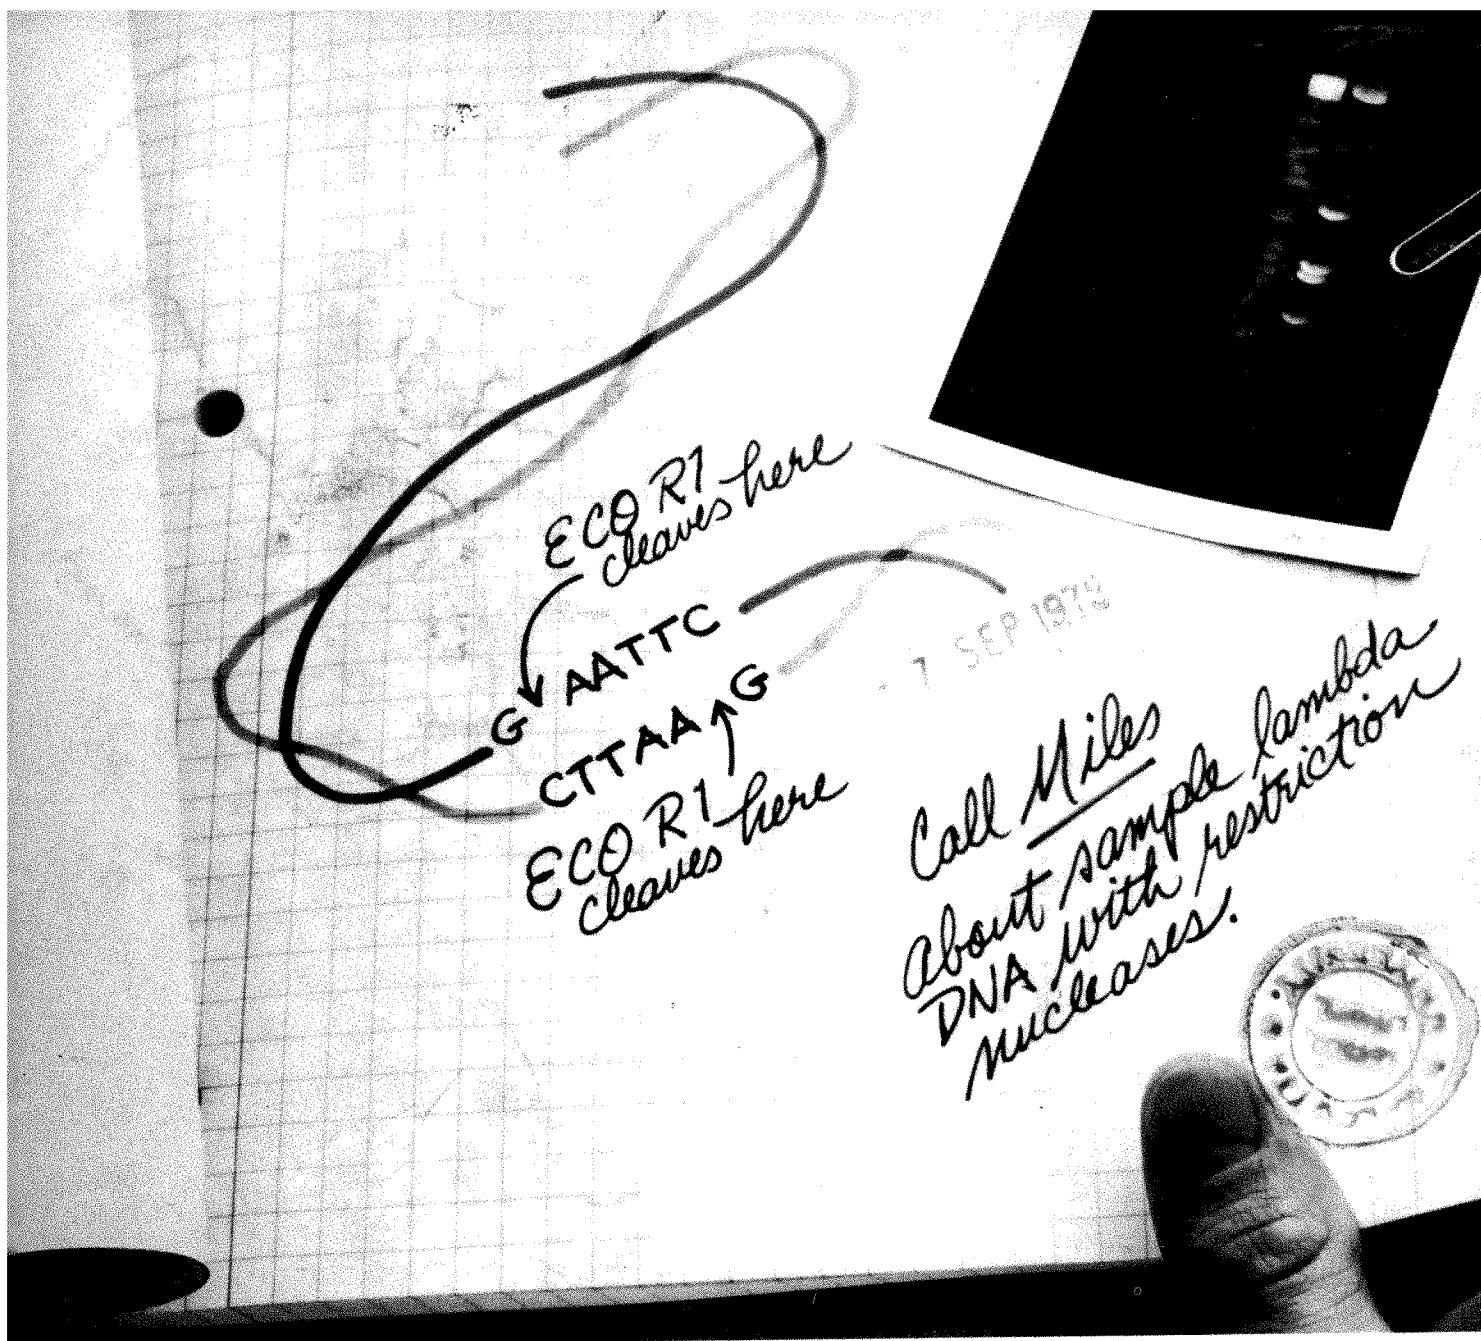 ECO R1
cleaves here
G AATTC
CTTAA G
ECO R1
cleaves here
7 SEP 197
Call Miles
about sample lambda
DNA with restriction
nucleases.